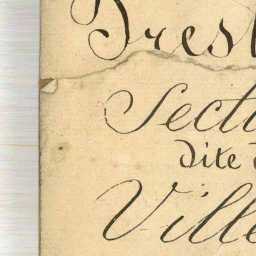 Drest
Secti
dite
Ville